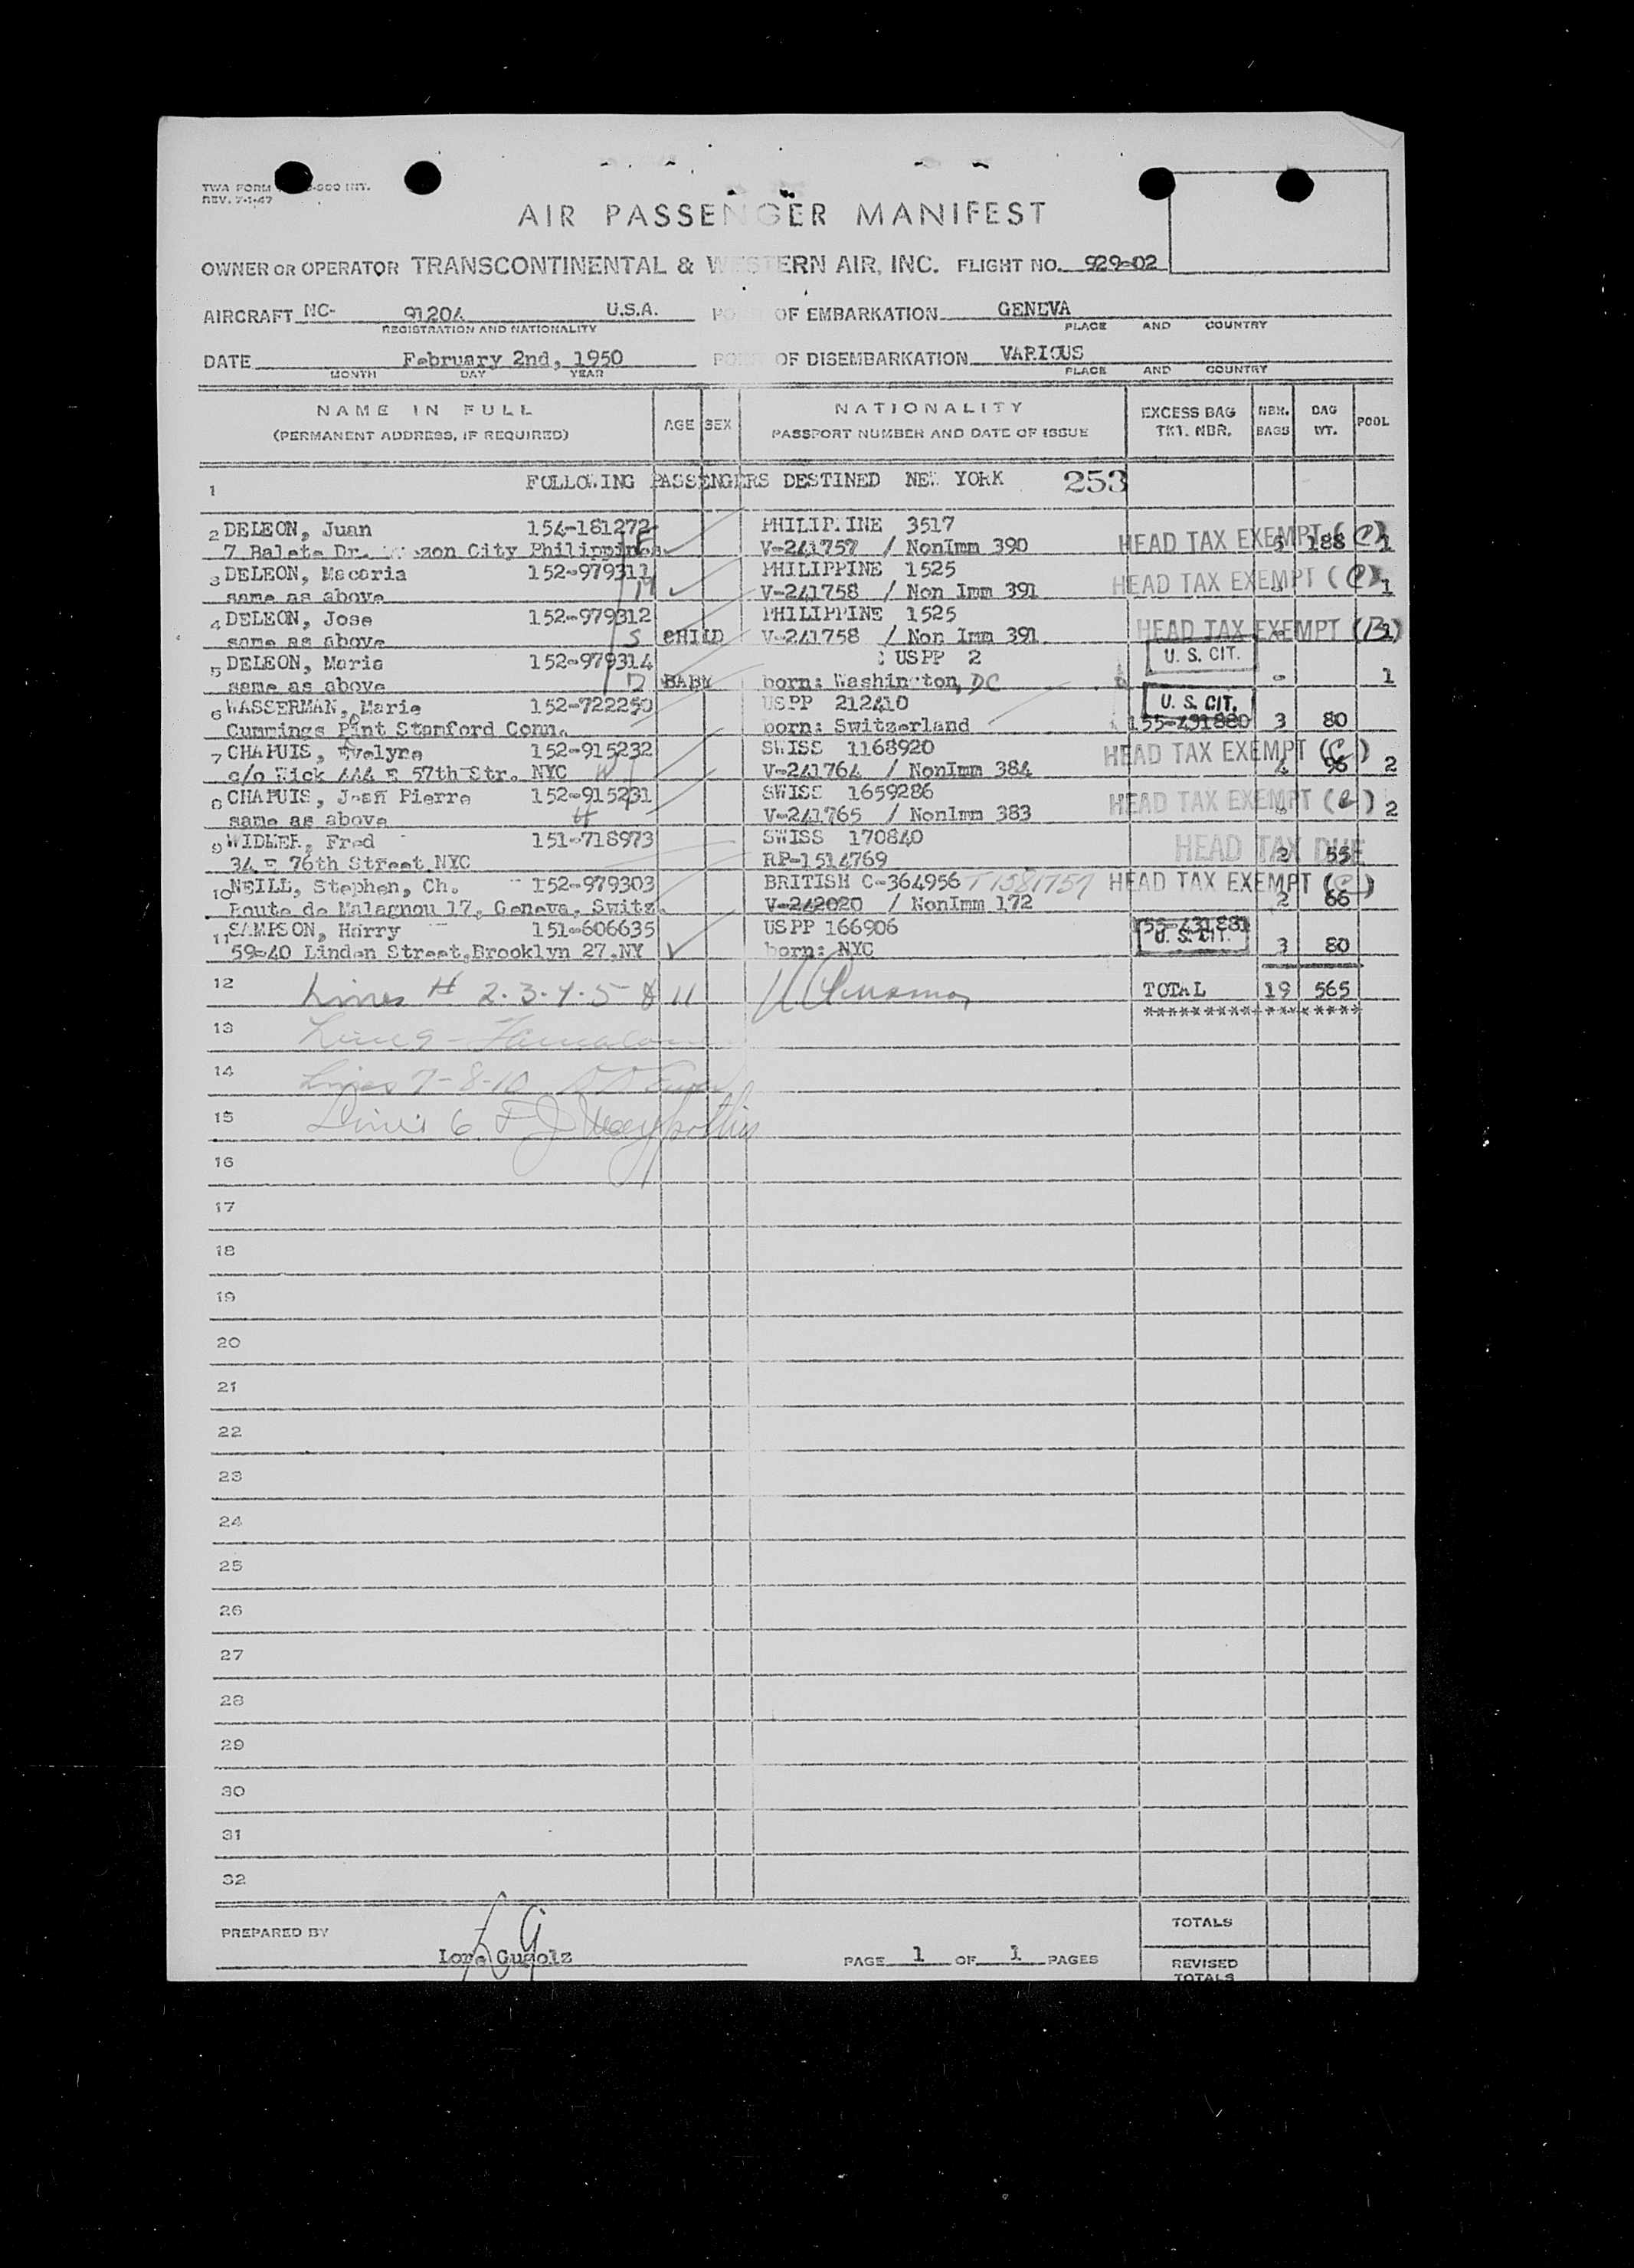 TWA FORM
REV. 7-1-47
AIR PASSENGER MANIFEST
OWNER OR OPERATOR TRANSCONTINENTAL & WESTERN AIR, INC. FLIGHT NO. 929-02
AIRCRAFT NC- 91204 U.S.A. OF EMBARKATION GENEVA
REGISTRATION AND NATIONALITY PLACE AND COUNTRY
DATE February 2nd, 1950 OF DISEMBARKATION VARIOUS
MONTH DAY YEAR PLACE AND COUNTRY
NAME IN FULL
(PERMANENT ADDRESS, IF REQUIRED) AGE SEX NATIONALITY
PASSPORT NUMBER AND DATE OF ISSUE EXCESS BAG
TKT. NBR. NBR.
BAGS BAG
WT. POOL
1 FOLLOWING PASSENGERS DESTINED NEW YORK 253
2 DELEON, Juan 154-181272 PHILIPPINE 3517
7 Balete Dr. zon City Philippines F V-241757 / NonImm 390 HEAD TAX EXEMPT (C) 5 188 1
3 DELEON, Macaria 152-979311 PHILIPPINE 1525
same as above M V-241758 / Non Imm 391 HEAD TAX EXEMPT (C) - 1
4 DELEON, Jose 152-979312 PHILIPPINE 1525
same as above S CHILD V-241758 / Non Imm 391 HEAD TAX EXEMPT (B) - 1
5 DELEON, Maria 152-979314 USPP 2 U. S. CIT.
same as above D BABY born: Washington, DC - 1
6 WASSERMAN, Marie 152-722250 USPP 212410 U. S. CIT.
Cummings Point Stamford Conn. born: Switzerland 155-431880 3 80
7 CHAPUIS, Evelyne 152-915232 SWISS 1168920 HEAD TAX EXEMPT (C)
c/o Kick 444 E 57th Str. NYC V-241764 / NonImm 384 4 96 2
8 CHAPUIS, Jean Pierre 152-915231 SWISS 1659286 HEAD TAX EXEMPT (C)
same as above V-241765 / NonImm 383 - 2
9 WIDMER, Fred 151-718973 SWISS 170840 HEAD TAX DUE
34 E 76th Street NYC RP-1514769 2 55
10 NEILL, Stephen, Ch. 152-979303 BRITISH C-364956 T1581757 HEAD TAX EXEMPT (C)
Route de Malagnou 17, Geneva, Switz. V-242020 / NonImm 172 2 66
11 SAMPSON, Harry 151-606635 USPP 166906 155-431881
59-40 Linden Street, Brooklyn 27, NY born: NYC U. S. CIT. 3 80
12 Lines # 2.3.4.5 & 11 TOTAL 19 565
*****************
13 Line 9 -
14 Lines 7-8-10
15 Line 6
16
17
18
19
20
21
22
23
24
25
26
27
28
29
30
31
32
PREPARED BY Lore Gugolz
PAGE 1 OF 1 PAGES
TOTALS
REVISED
TOTALS